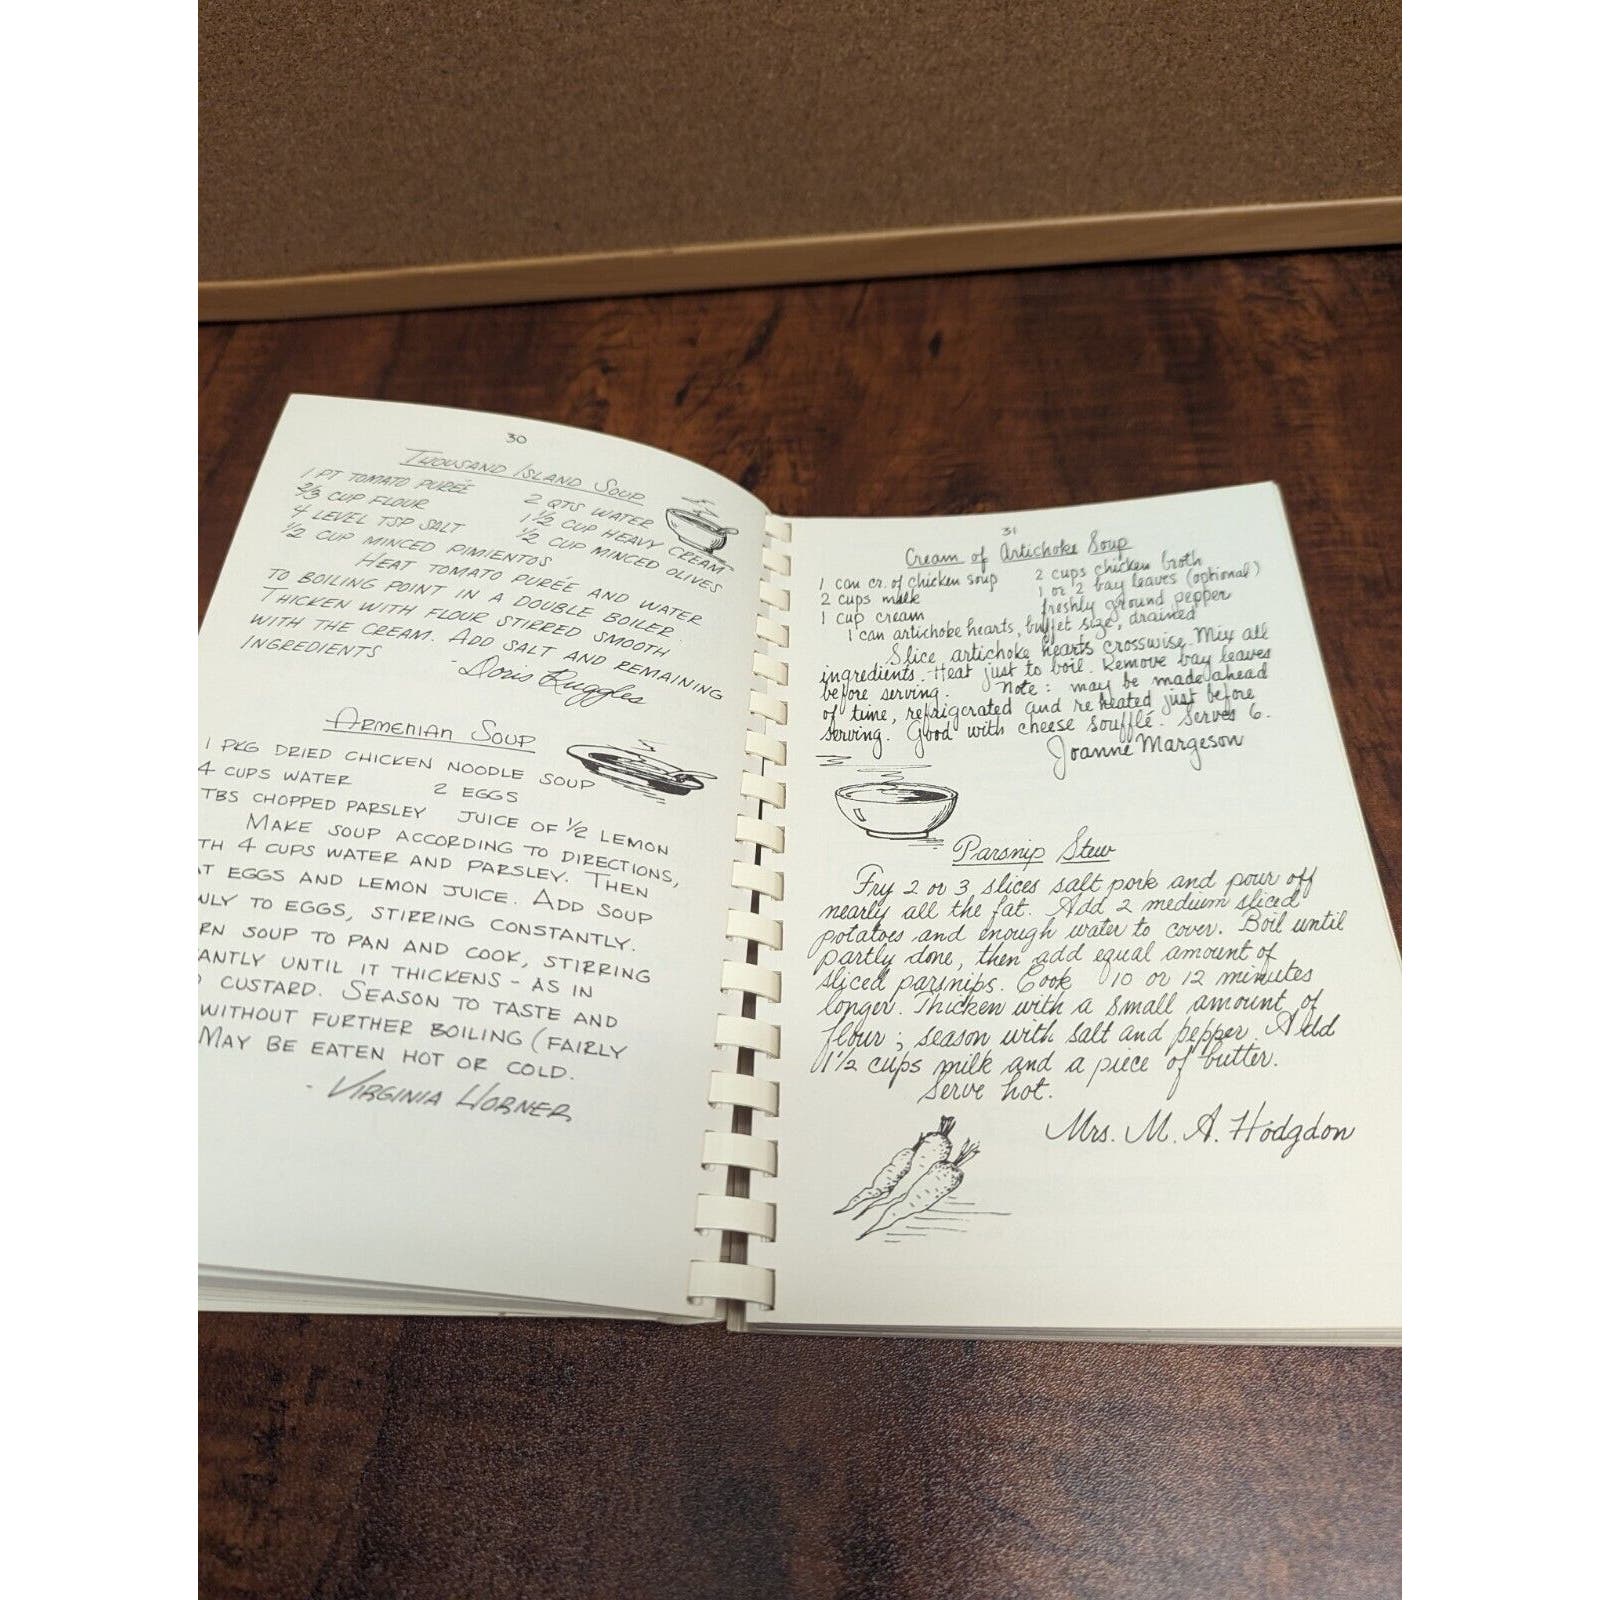 30
THOUSAND ISLAND SOUP
1 PT TOMATO PURÉE 2 QTS WATER
2/3 CUP FLOUR 1 1/2 CUP HEAVY CREAM
4 LEVEL TSP SALT 1/2 CUP MINCED OLIVES
1/2 CUP MINCED PIMIENTOS
HEAT TOMATO PURÉE AND WATER
TO BOILING POINT IN A DOUBLE BOILER.
THICKEN WITH FLOUR STIRRED SMOOTH
WITH THE CREAM. ADD SALT AND REMAINING
INGREDIENTS
- Doris Ruggles
ARMENIAN SOUP
1 PKG DRIED CHICKEN NOODLE SOUP
4 CUPS WATER 2 EGGS
TBS CHOPPED PARSLEY JUICE OF 1/2 LEMON
MAKE SOUP ACCORDING TO DIRECTIONS,
TH 4 CUPS WATER AND PARSLEY. THEN
AT EGGS AND LEMON JUICE. ADD SOUP
WLY TO EGGS, STIRRING CONSTANTLY.
RN SOUP TO PAN AND COOK, STIRRING
ANTLY UNTIL IT THICKENS - AS IN
CUSTARD. SEASON TO TASTE AND
WITHOUT FURTHER BOILING (FAIRLY
MAY BE EATEN HOT OR COLD.
- VIRGINIA HORNER
31
Cream of Artichoke Soup
1 can cr. of chicken soup 2 cups chicken broth
2 cups milk 1 or 2 bay leaves (optional)
1 cup cream freshly ground pepper
1 can artichoke hearts, buffet size, drained
Slice artichoke hearts crosswise. Mix all
ingredients. Heat just to boil. Remove bay leaves
before serving. Note: may be made ahead
of time, refrigerated and reheated just before
serving. Good with cheese soufflé. Serves 6.
Joanne Margeson
Parsnip Stew
Fry 2 or 3 slices salt pork and pour off
nearly all the fat. Add 2 medium sliced
potatoes and enough water to cover. Boil until
partly done, then add equal amount of
sliced parsnips. Cook 10 or 12 minutes
longer. Thicken with a small amount of
flour; season with salt and pepper. Add
1 1/2 cups milk and a piece of butter.
Serve hot.
Mrs. M. A. Hodgdon